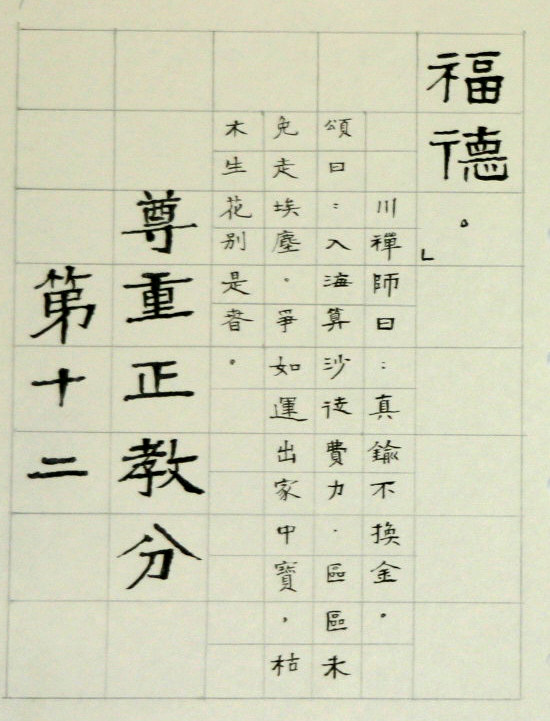 福德。」
川禪師曰：真鍮不換金。
頌曰：入海算沙徒費力．區區未
免走埃塵．爭如運出家中寶，枯
木生花別是春。
尊重正教分
第十二